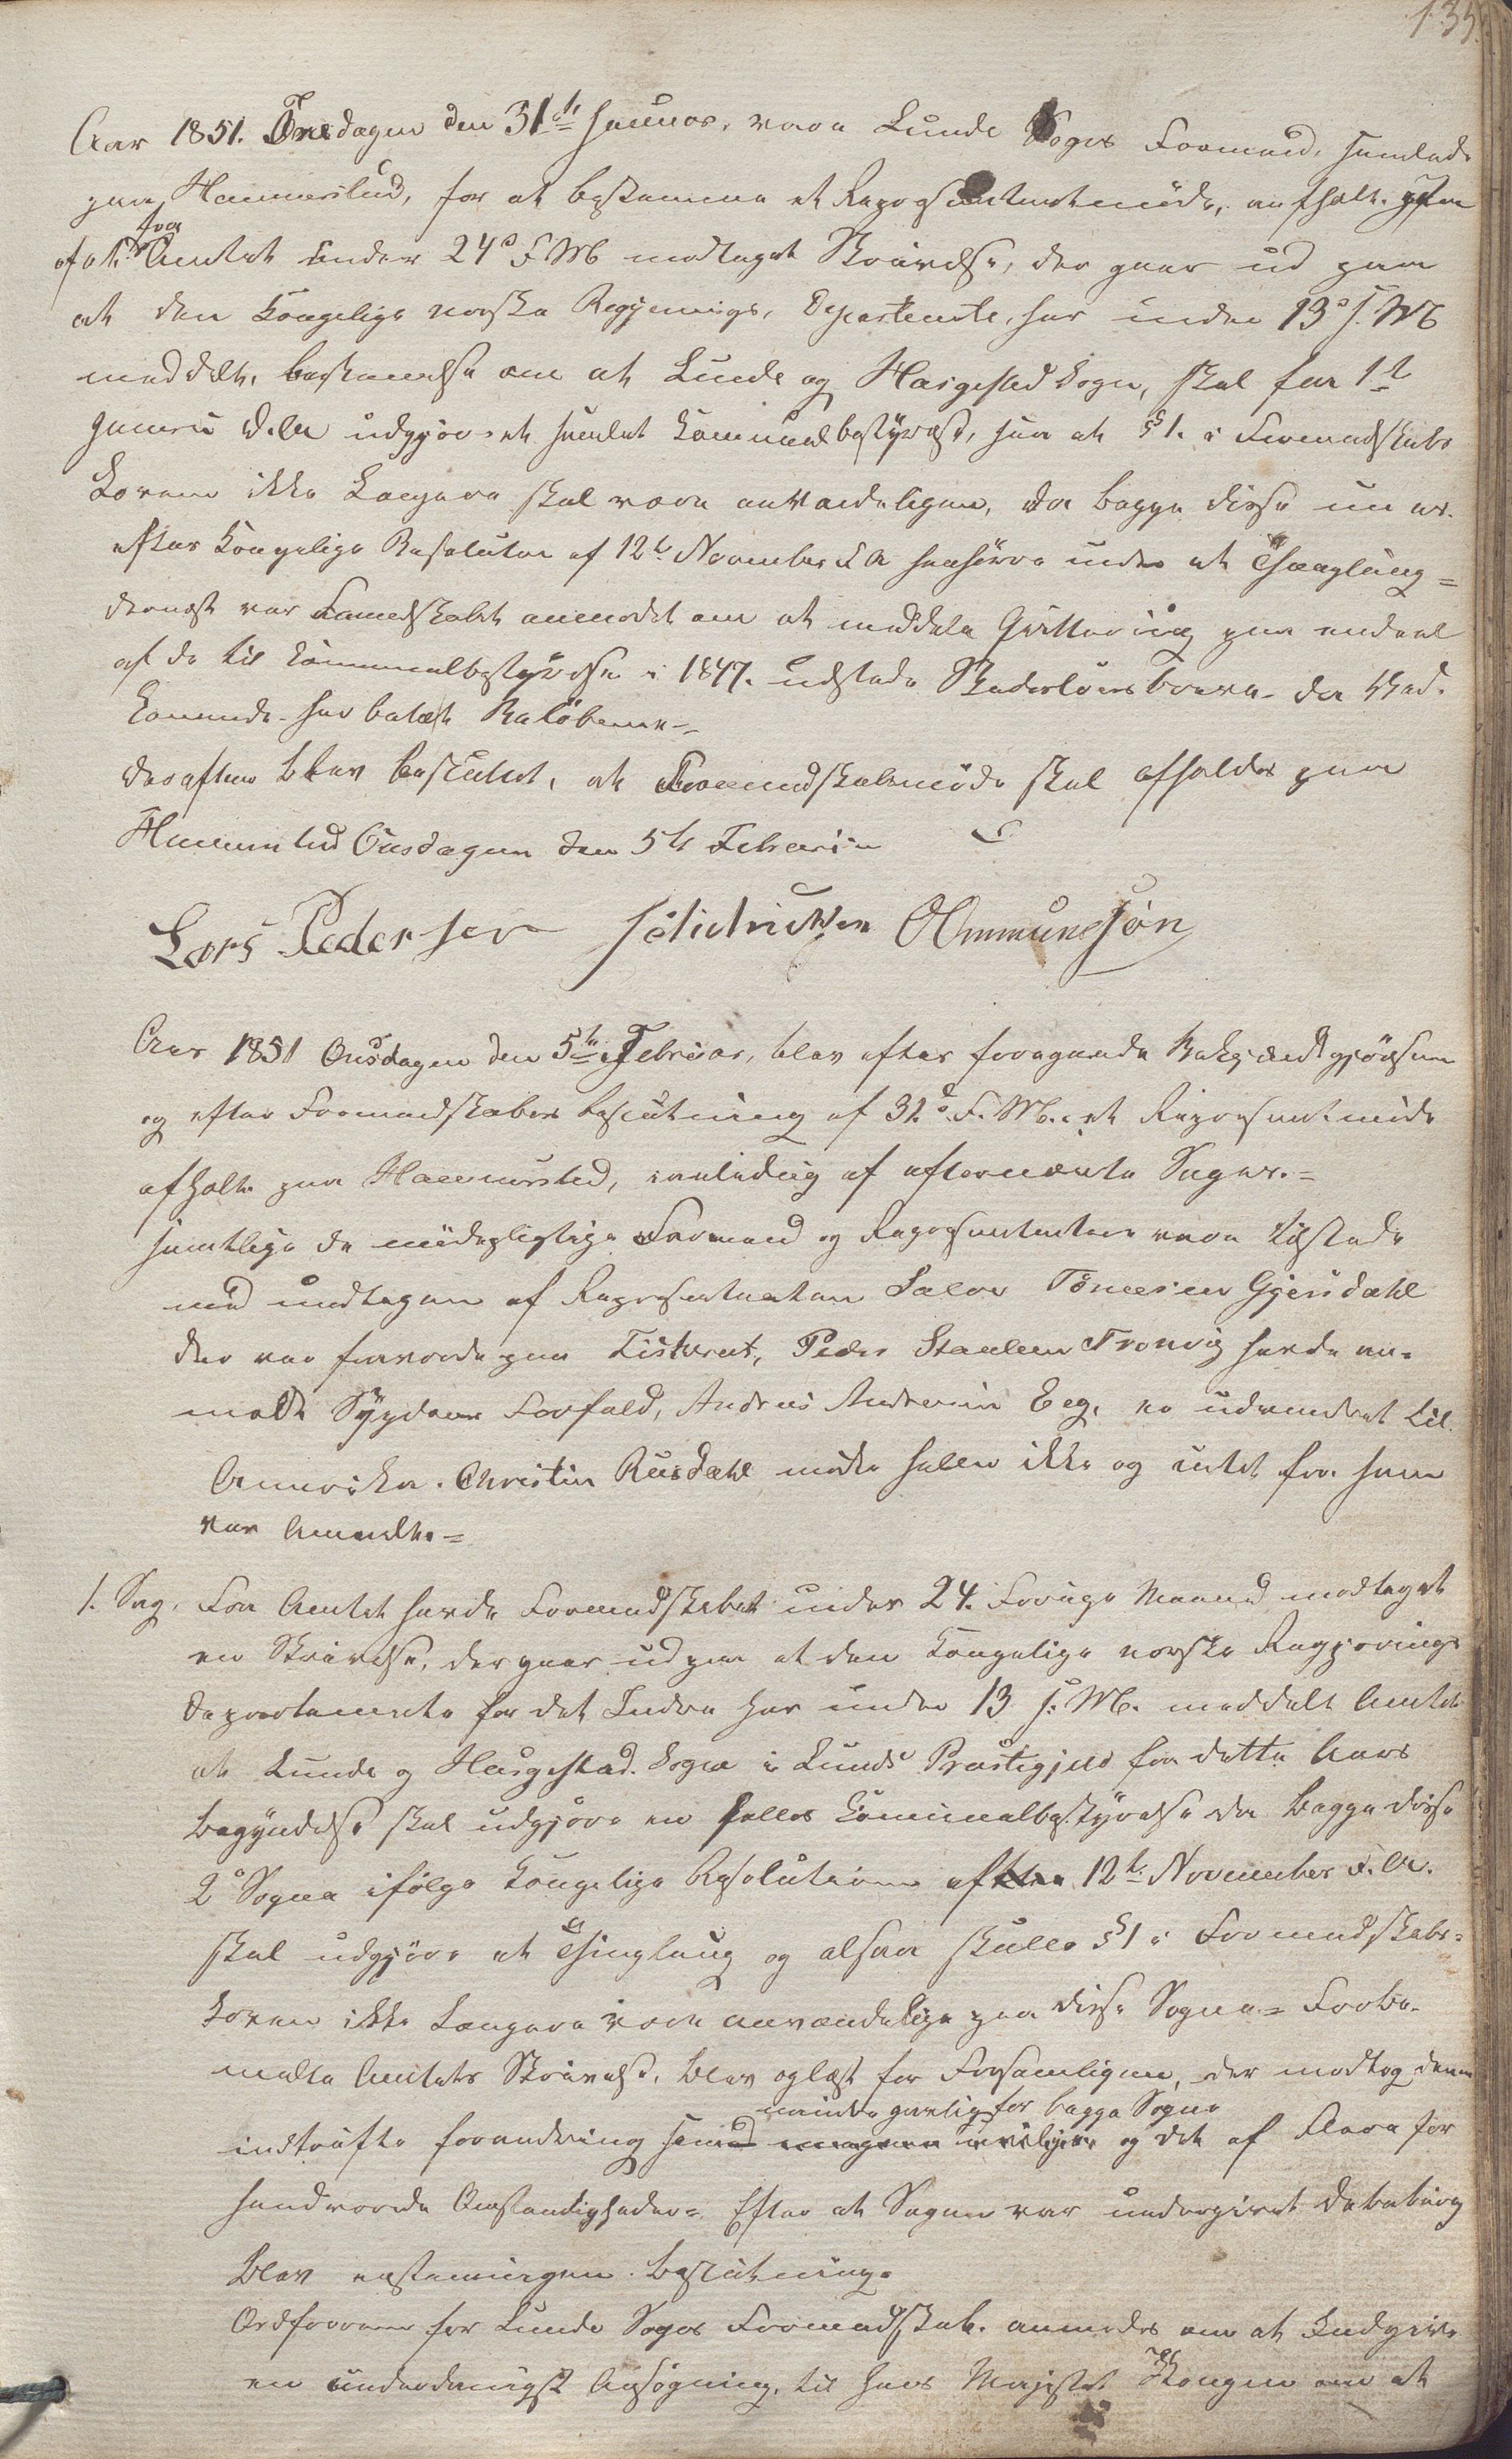 135.
Aar 1851. Fredagen den 31te Januar, vare Lunde Sogns Formænd, samlede
paa Hammersted, for at bestemme et Repræsentantmøde, anholt.
fra Amtet under 24d F. Mb modtaget Skrivelse, der gaar ud paa
at den Kongelige norske Regjerings, Departemente, har under 13d s. Mb
meddelt, bestemelse om at Lunde og Heigestad Sogn, skal fra 1te
Januari d. A. udgjøre et samlet Communalbestyrelse, saa at § 1. i Formandskabs
Loven ikke Længere skal være anvendeligen, da begge disse nu er
efter Kongelige Resolution af 12te November f A henhører under et Thinglaug =
dernæst var Formandskabet anmodet om at meddele Qvittering paa endeel
af de til Communalbestyrelse i 1847. udstede Skadesløsbreve. da Ved-
kommende har betalt Beløbene =
derefter blev besluttet, at Formandskabsmøde skal afholdes paa
Hammersted Onsdagen den 5te Februari
Lars Pedersen OOmmundsøn
Aar 1851 Onsdagen den 5te Februar, blev efter foregaaende Bekjendtgjørelse
og efter Formandskabets beslutning af 31d F. Mb. et Repræsentantmøde
afholt paa Hammersted, i anledning af efternævnte Sager. =
samtlige de mødepligtige Formænd og Repræsentantere vare tilstede
med undtagen af Repræsentanten Salve Tønnesen Gjersdahl
der var fraværende paa Fiskeriet, Peder Staalesen Tronvig havde an-
meldt Sygdoms Forfald, Andreas Andersen Eeg, er udvandret til
Amerika. Christen Rusdahl mødte heller ikke og intet fra ham
var Anmeldte =
1. Sag. Fra Amtet havde Formandskabet under 24. Forrige Maaned modtaget
en Skrivelse, der gaar ud paa at den Kongelige norske Regjerings
Departemente for det Indre har under 13 s. Mb. meddelt Amtet
at Lunde og Heigestad Sogne i Lunds Præstegjeld fra dette Aars
begyndelse skal udgjøre en fælles Communalbestyrelse da begge disse
2d Sogne ifølge Kongelige Resolution af 12te November F. A.
skal udgjøre et Thinglaug og altsaa skulle § 1 i Formandskabs =
Loven ikke Længere være anvendelige paa disse Sogne = Forbe-
meldte Amtets Skrivelse, blev oplæst for Forsamligen, der modtog denne
mindre gavlig for begge Sogne
indtrufte forandring som og det af Flere for
handværende Omstændigheder = Efter at Sagen var undergivet debatering
blev enstemmigen beslutning.
Ordføreren for Lunde Sogns Formandskab. anmodes om at Indgive
en underdanigst Ansøgning, til Hans Majestet Kongen om at